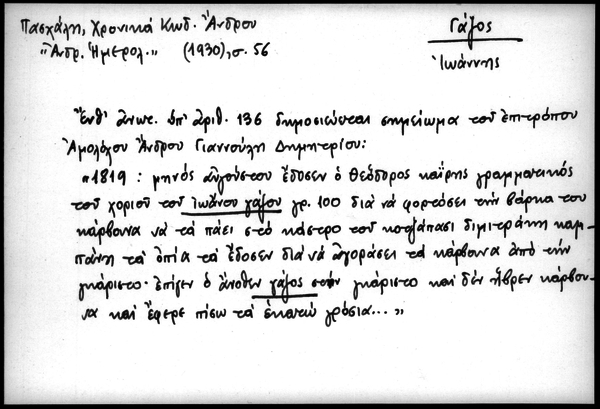 Πασχάλη, Χρονικά Κωδ. Ἄνδρου
"Ἀνδρ. Ἡμερολ." (1930), σ. 56
Γάζος
Ἰωάννης
Ἔνθ' ἀνωτ. ὑπ' ἀριθ. 136 δημοσιεύεται σημείωμα τοῦ ἐπιτρόπου
Ἀμολόχου Ἄνδρου Γιαννούλη Δημητρίου:
"1819: μηνός αὐγούστου ἔδοσεν ὁ θεόδορος καΐρης γραμματικός
τοῦ χοριοῦ τοῦ ἰωάνου γάζου γρ. 100 διά νά φορτόσει τήν βάρκα του
κάρβουνα νά τά πάει στό κάστρο τοῦ κοτζάπασι διμιτράκη καμ-
πάνη τά ὁπία τά ἔδοσεν διά νά ἀγοράσει τά κάρβουνα ἀπό τήν
γκάριστο· ἐπίγεν ὁ ἄνοθεν γάζος στήν γκάριστο καί δέν ἦβρεν κάρβου-
να καί ἔφερε πίσω τά ἑκατώ γρόσια..."